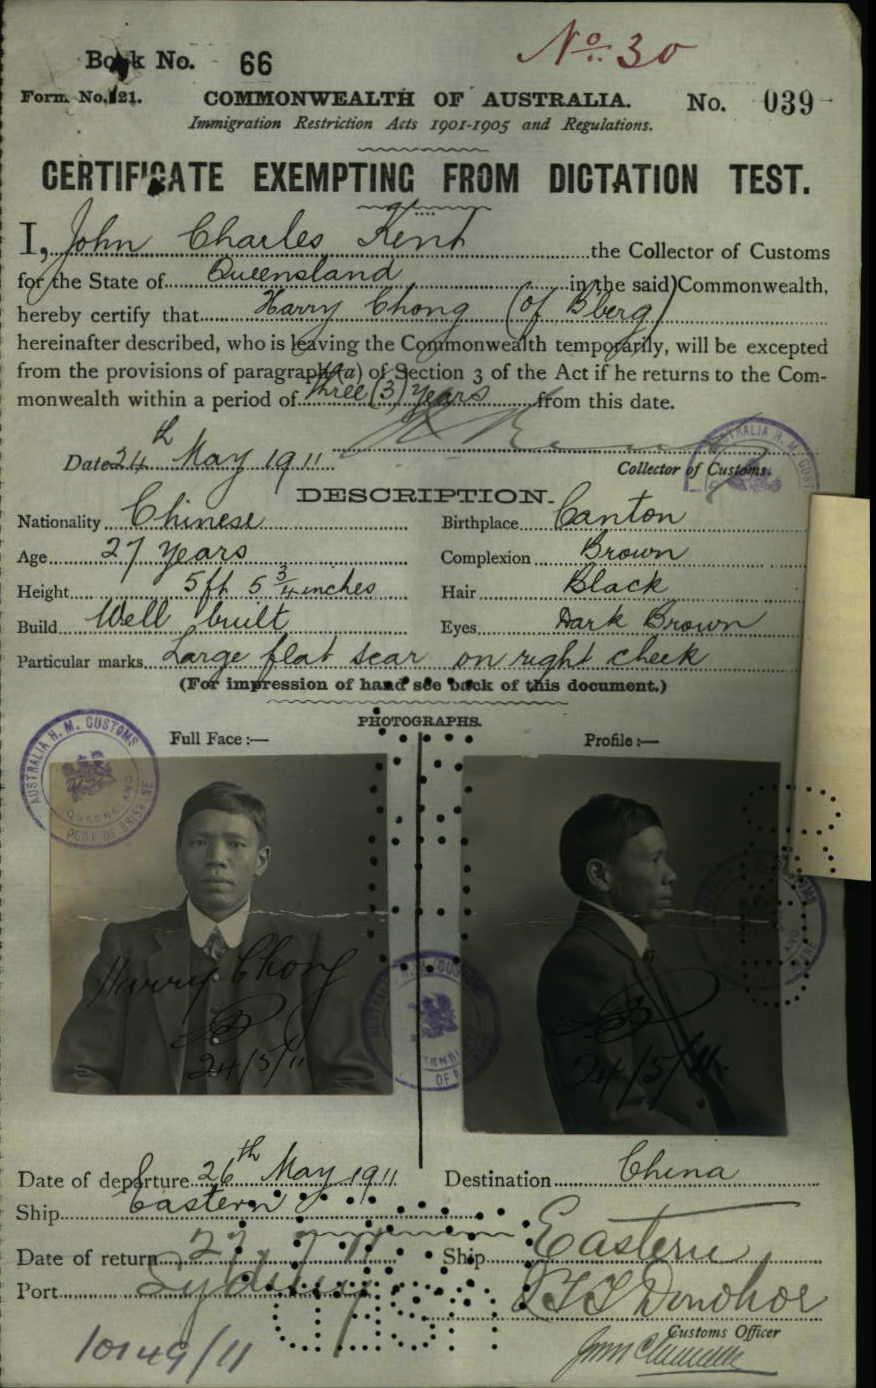 Book No. 66
No. 30
Form. No. 21.
COMMONWEALTH OF AUSTRALIA.
No. 039
Immigration Restriction Acts 1901-1905 and Regulations.
CERTIFICATE EXEMPTING FROM DICTATION TEST.
I, John Charles Kent the Collector of Customs
for the State of Queensland in the said Commonwealth,
hereby certify that Harry Chong (of B'berg)
hereinafter described, who is leaving the Commonwealth temporarily, will be excepted
from the provisions of paragraph (a) of Section 3 of the Act if he returns to the Com-
monwealth within a period of three (3) years from this date.
Date 24th May 1911.
Collector of Customs.
DESCRIPTION.
Nationality Chinese
Birthplace Canton
Age 27 years
Complexion Brown
Height 5ft 5 3/4 inches
Hair Black
Build Well built
Eyes Dark Brown
Particular marks Large flat scar on right cheek
(For impression of hand see back of this document.)
PHOTOGRAPHS.
Full Face :—
Profile :—
AUSTRALIA H. M. CUSTOMS
QUEENSLAND
PORT OF BRISBANE
Harry Chong
24/5/11
24/5/11
Date of departure 26th May 1911
Destination China
Ship Eastern
Date of return 27. 7. 11
Ship Eastern
Port Sydney
Donohoe
Customs Officer